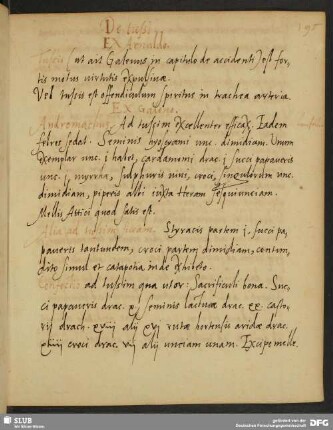 De tussi
EX Arnaldo.
195
Tussis (ut ait Galenus in capitulo de accidenti) est for,
tis motus virtutis expulsivæ.
Vel tussis est offendiculum spiritus in trachea arteria.
EX Galeno.
Andromachus Ad tussim excellenter efficax. Eadem
febres sedat. Seminis hyosciami unc. dimidiam. Unum
exemplar unc. j habet, cardamomi drac. j succi papaveris
unc. j, myrrha, sulphuris vivi, croci, singulorum unc.
dimidiam, piperis albi iuxta Heram sesquiunciam.
Mellis Attici quod satis est.
Alia ad tussim Styracis partem j. succi pa,
paveris tantundem, croci partem dimidiam, contun,
dito simul et catapotia inde exhibeto.
ad tussim qua utor: Sacrificuli bona. Suc,
ci papaveris drac. xj seminis lactucæ drac. xx. casto,
rij drach. xviij alij xvj rutæ hortensis aridæ drac.
xliiij croci drac. vij alij unciam unam. Excipe melle.
SLUB
Wir führen Wissen.
gefördert von der
Deutschen Forschungsgemeinschaft
DFG